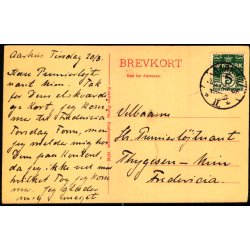 Aarhus Torsdag 20/8.
Kære Premierløjt-
nant Mim. Tak
for Deres elskvær-
dige Kort, jeg kom
mer til Fredericia
Torsdag Form, maa
jeg melde mig hos
Dem paa Kontoret,
da jeg ikke ved med
hvilket Tog jeg kom
mer. Jeg glæder
mig
BREVKORT
Kun for Adressen.
5
Velbaarne
Hr. Premierløjtnant
Thygesen-Mim
Fredericia.